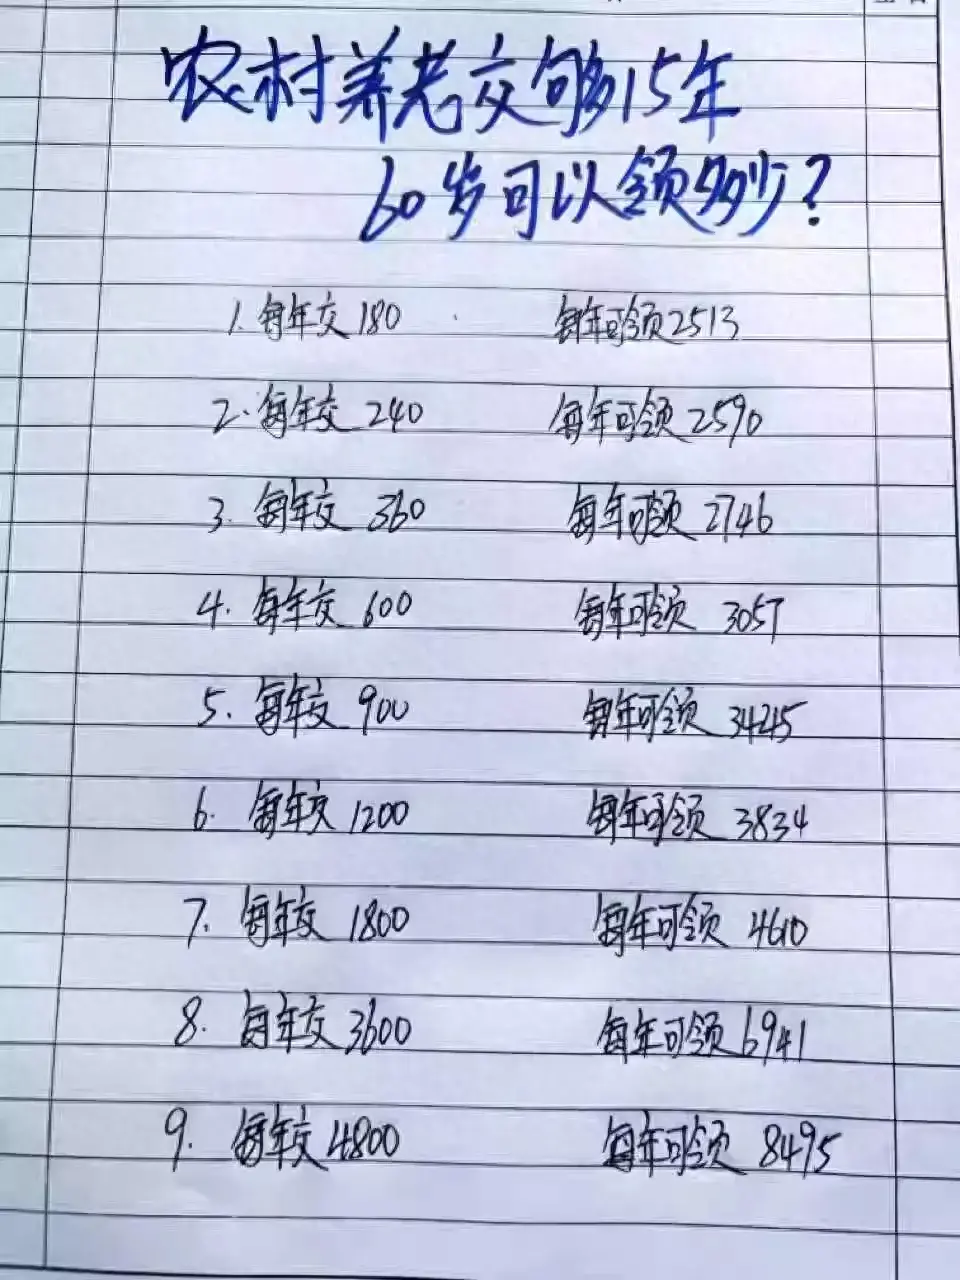 农村养老交够15年
60岁可以领多少?
1. 每年交 180 每年可领 2513
2. 每年交 240 每年可领 2590
3. 每年交 360 每年可领 2746
4. 每年交 600 每年可领 3057
5. 每年交 900 每年可领 3445
6. 每年交 1200 每年可领 3834
7. 每年交 1800 每年可领 4610
8. 每年交 3600 每年可领 6941
9. 每年交 4800 每年可领 8495